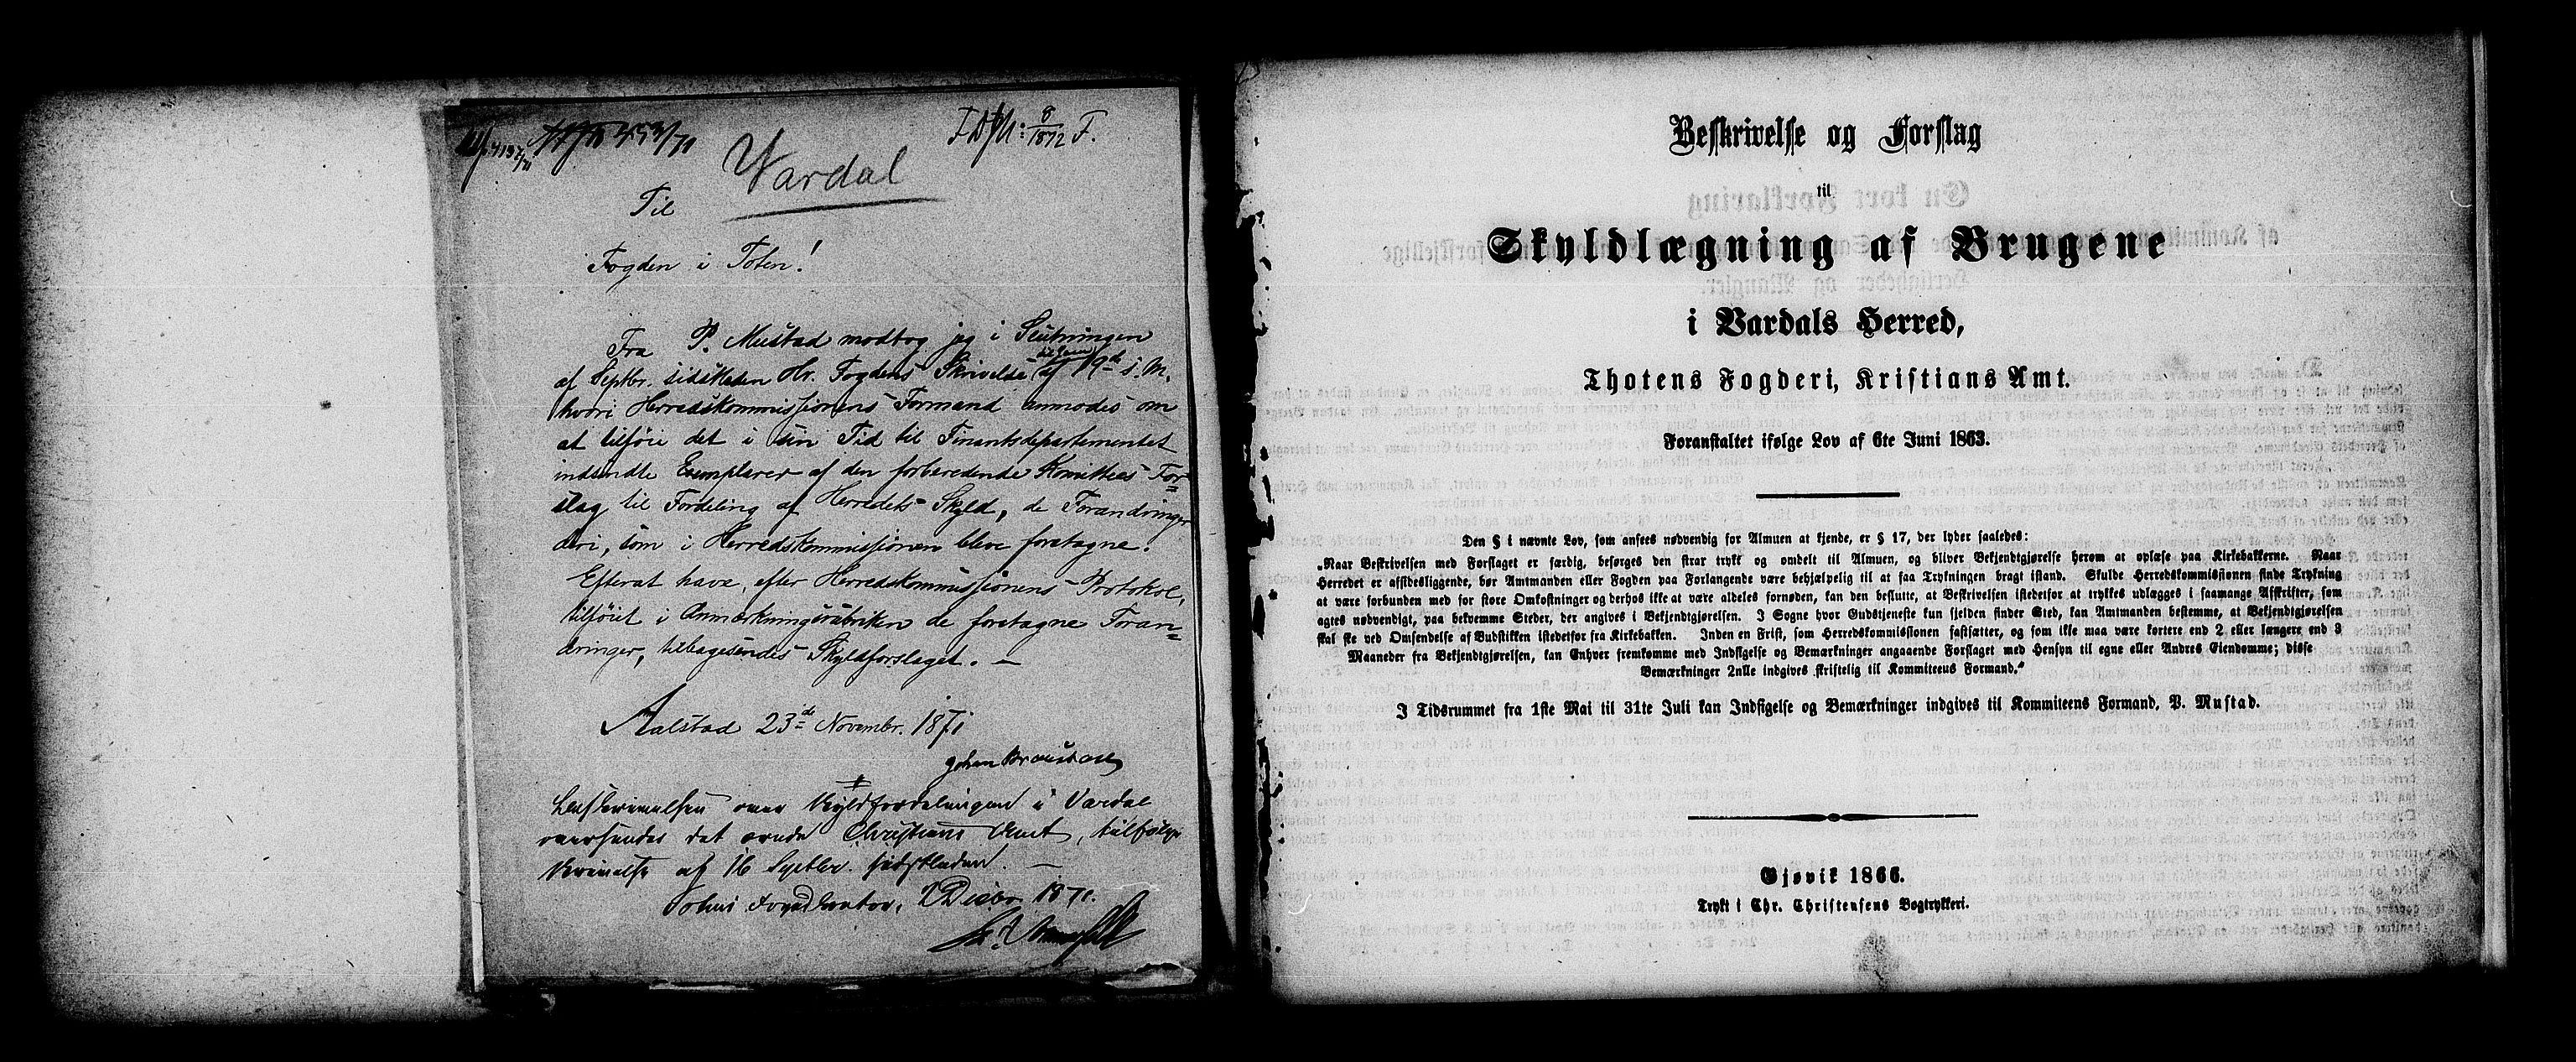 8/1872 F.
Vardal
Til
Fogden i Toten!
Fra P. Mustad modtog jeg i Slutningen
af Septbr. sidstleden Hr. Fogdens Skrivelse af 19de s. M.
hvori Herredskommissionens Formand anmodes om
at tilføie det i sin Tid til Finantsdepartementet
indsendte Exemplarer af den forberedende Komittees For=
slag til Fordeling af Herredets Skyld, de Forandringer
deri, som i Herredskommissionen bleve foretagne.
Efterat have, efter Herredskommissionens Protokol,
tilføiet i Anmærkningsrubriken de foretagne Foran=
dringer, tilbagesendes Skyldforslaget. —
Aalstad 23de Novembr. 1871
Johan Braastad
over Skyldfordelingen i Vardal
oversendes det ærede Christians Amt, tilfølge
Skrivelse af 16 Septbr. sidstleden. —
Totens Fogedkontor, 2 Decbr. 1871.
Beskrivelse og Forslag
til
Skyldlægning af Brugene
i Vardals Herred,
Thotens Fogderi, Kristians Amt.
Foranstaltet ifølge Lov af 6te Juni 1863.
Den § i nævnte Lov, som ansees nødvendig for Almuen at kjende, er § 17, der lyder saaledes:
„Naar Beskrivelsen med Forslaget er færdig, besørges den strax trykt og omdelt til Almuen, og bliver Bekjendtgjørelse herom at oplæse paa Kirkebakkerne. Naar
Herredet er affidesliggende, bør Amtmanden eller Fogden paa Forlangende være behjælpelig til at faa Trykningen bragt istand. Skulde Herredskommissionen finde Trykning
at være forbunden med for store Omkostninger og derhos ikke at være aldeles fornøden, kan den beslutte, at Beskrivelsen istedetfor at trykkes udlægges i saamange Afskrifter, som
agtes nødvendigt, paa bekvemme Steder, der angives i Bekjendtgjørelsen. I Sogne hvor Gudstjeneste kun sjelden finder Sted, kan Amtmanden bestemme, at Bekjendtgjørelsen
skal ske ved Omsendelse af Budstikken istedetfor fra Kirkebakken. Inden en Frist, som Herredskommissionen fastsætter, og som ikke maa være kortere end 2 eller længere end 3
Maaneder fra Bekjendtgjørelsen, kan Enhver fremkomme med Indsigelse og Bemærkninger angaaende Forslaget med Hensyn til egne eller Andres Eiendomme; disse
Bemærkninger 2nlle indgives skriftelig til Kommiteeus Formand."
I Tidsrummet fra 1ste Mai til 31te Juli kan Indsigelse og Bemærkninger indgives til Kommiteens Formand, P. Mustad.
Gjøvik 1866.
Trykt i Chr. Christensens Bogtrykkeri.